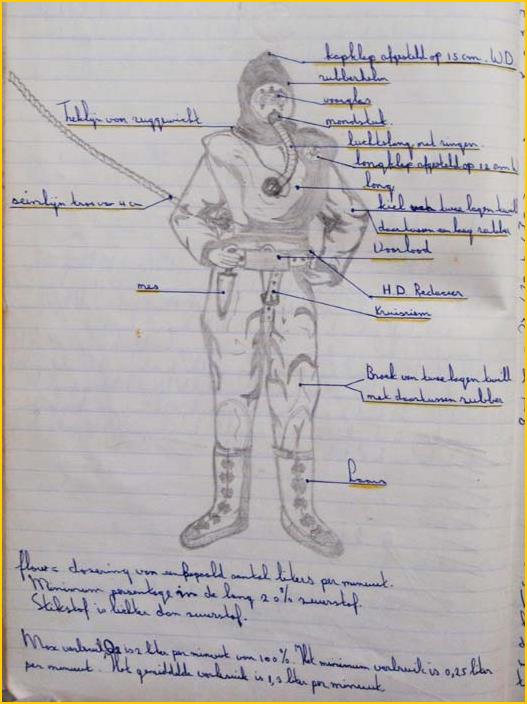 kapklep afgesteld op 15 cm. WD
rubberhelm
voorglas
mondstuk.
Treklijn voor ruggewicht
luchtslang met ringen.
longklep afgesteld op 12 cm
long
seinlijn tros van 4 cm
kiel van twee lagen twill
daartussen een laag rubber
Voorlood
mes
H.D. Reducer
Kruisriem
Broek van twee lagen twill
met daartussen rubber
flow = dosering van een bepaald aantal liters per minuut.
Minimum persentage in de long 20% zuurstof.
Stikstof is lichter dan zuurstof.
Max verbruik O2 is 2 liter per minuut van 100%. Het minimum verbruik is 0,25 liter
per minuut. Het gemiddelde verbruik is 1,3 liter per minuut